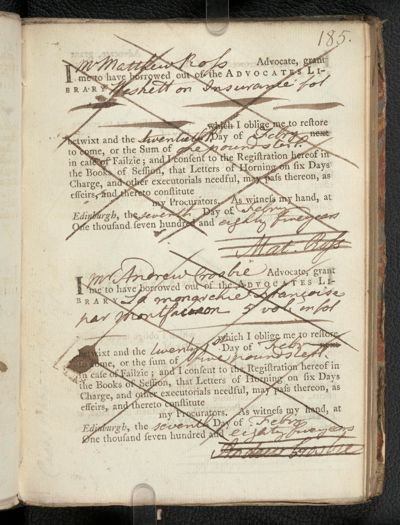 185.
I Mr Matthew Ross Advocate, grant
me to have borrowed out of the ADVOCATES LI-
BRARY Weskett on Insurance for
which I oblige me to restore
betwixt and the twentieth Day of Febry next
to come, or the Sum of one pound ster.
in case of Failzie; and I consent to the Registration hereof in
the Books of Session, that Letters of Horning on six Days
Charge, and other executorials needful, may pass thereon, as
effeirs, and thereto constitute
my Procurators. As witness my hand, at
Edinburgh, the seventh Day of Febry
One thousand seven hundred and eighty five years
Mat. Ross
I Mr. Andrew Crosbie Advocate, grant
me to have borrowed out of the ADVOCATES LI-
BRARY La monarchie Françoise
par Montfaucon 5 vols in fol
which I oblige me to restore
betwixt and the twentieth Day of Febry next
to come, or the sum of five pounds ster.
in case of Failzie; and I consent to the Registration hereof in
the Books of Session, that Letters of Horning on six Days
Charge, and other executorials needful, may pass thereon, as
effeirs, and thereto constitute
my Procurators. As witness my hand, at
Edinburgh, the seventh Day of Febry
One thousand seven hundred and eighty five years
Andrew Crosbie